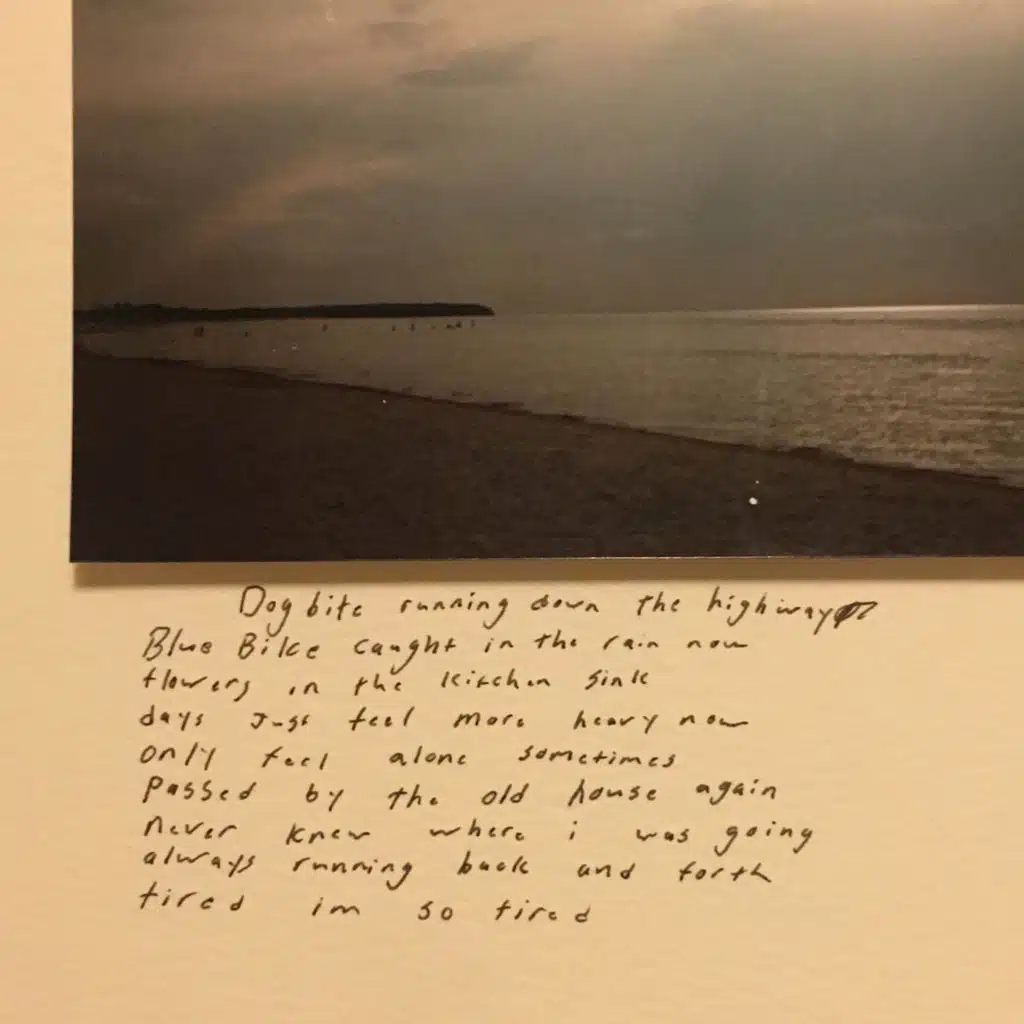 Dog bite running down the highway
Blue Bike caught in the rain now
flowers in the kitchen sink
days Just feel more heavy now
only feel alone sometimes
Passed by the old house again
never knew where i was going
always running back and forth
tired im so tired